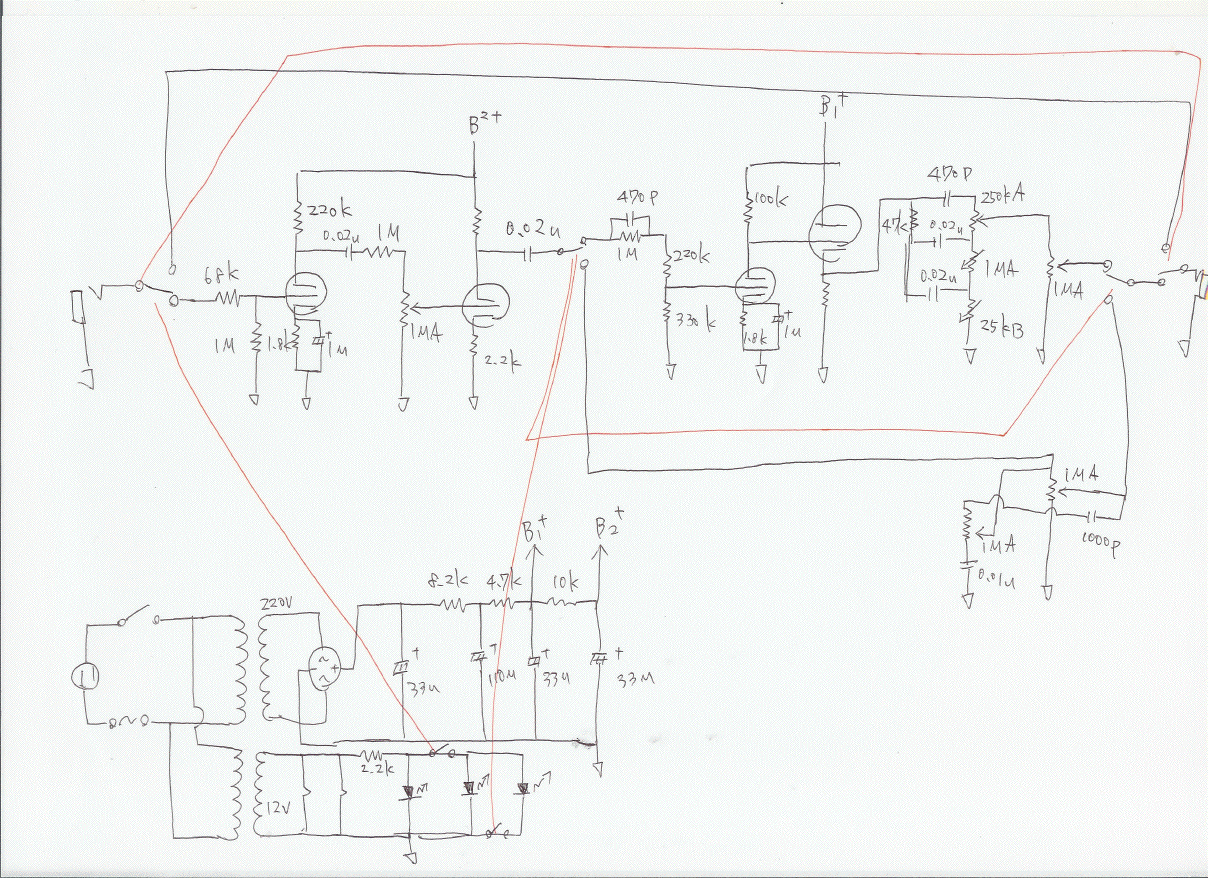 B2+
B1+
470P
470P
250kA
220k
100k
0.02u
1M
0.02u
47k
0.02u
1M
68k
220k
1MA
0.02u
1MA
1M
1.8k
1M
1MA
330k
1.8k
1M
25kB
2.2k
1MA
1000P
1MA
0.01u
B1+
B2+
8.2k
4.7k
10k
220V
~
+
~
+
+
+
+
33u
110M
33u
33M
2.2k
12V